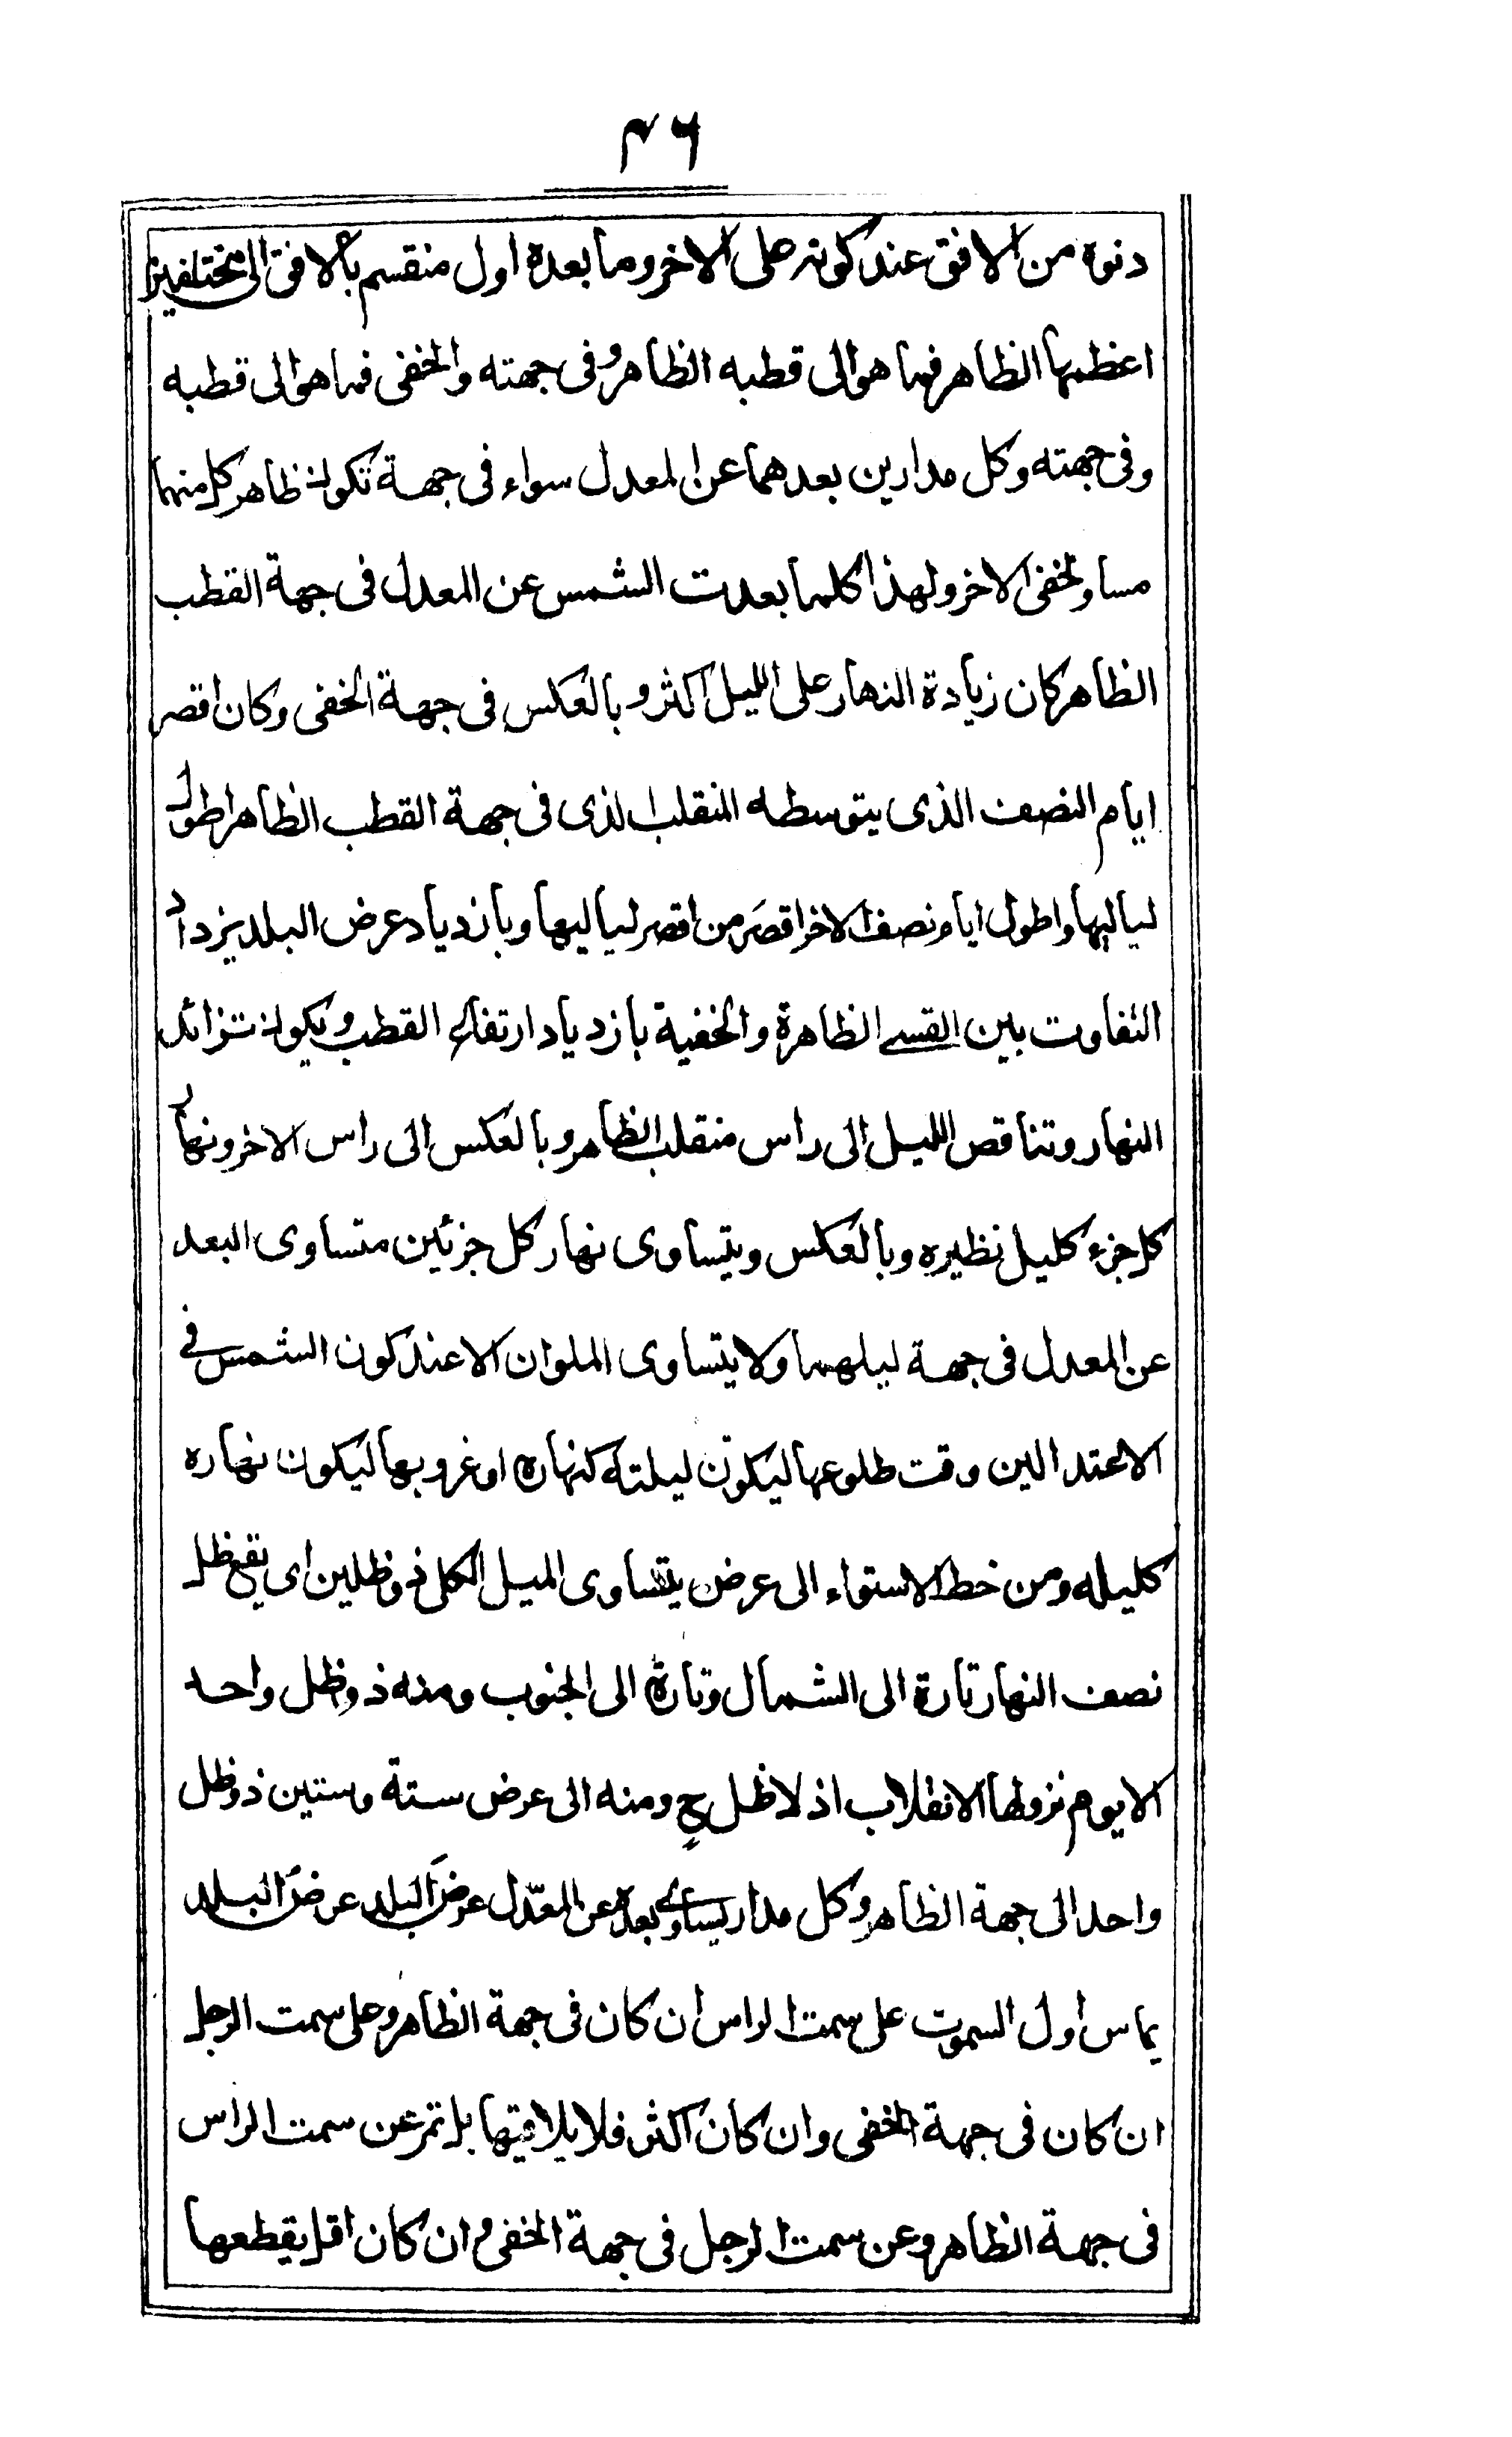 ٤٦
دنوه من الافق عند كونه على الاخر وما بعده اول منقسم بالافق الى مختلفين
اعظمها الظاهر فيما هو الى قطبه الظاهر وفى جهته والخفى فيما هو الى قطبه
وفى جهته وكل مدارين بعدهما عن المعدل سواء فى جهة تكون ظاهر كل منهما
مساو لخفى الاخر ولهذا كلما بعدت الشمس عن المعدل فى جهة القطب
الظاهر كان زيادة النهار على الليل اكثر وبالعكس فى جهة الخفى وكان اقصر
ايام النصف الذى يتوسطه المنقلب الذى فى جهة القطب الظاهر اطول
لياليها واطول ايام نصف الاخر اقصَر من اقصر لياليها وبازدياد عرض البلد يزداد
التفاوت بين القسے الظاهرة والخفية بازدياد ارتفاع القطب ويكون تزائد
النهار وتناقص الليل الى راس منقلب الظاهر وبالعكس الى راس الاخر ونهار
كل جزء كليل نظيره وبالعكس ويتساوى نهار كل جزئين متساوى البعد
عن المعدل فى جهة ليلهما ولا يتساوى الملوان الا عند كون الشمس فے
الاعتدالين وقت طلوعها ليكون ليلته كنهاره او غروبها ليكون نهاره
كليله ومن خط الاستواء الى عرض يتساوى الميل الكلى ذو ظلين اى يقع ظل
نصف النهار تارة الى الشمال وتارة الى الجنوب ومنه ذو ظل واحد
الا يوم نزولها الانقلاب اذ لا ظل ح ومنه الى عرض ستة وستين ذو ظل
واحد الى جهة الظاهر وكل مدار يساوے بعده عن المعدّل عرضَ البلد عرضَ البلد
يماس اول السموت على سمت الراس ان كان فى جهة الظاهر وعلى سمت الرجل
ان كان فى جهة الخفى وان كان اكثر فلا يلاقيها بل تمر عن سمت الراس
فى جهة الظاهر وعن سمت الرجل فى جهة الخفى وان كان اقل يقطعها